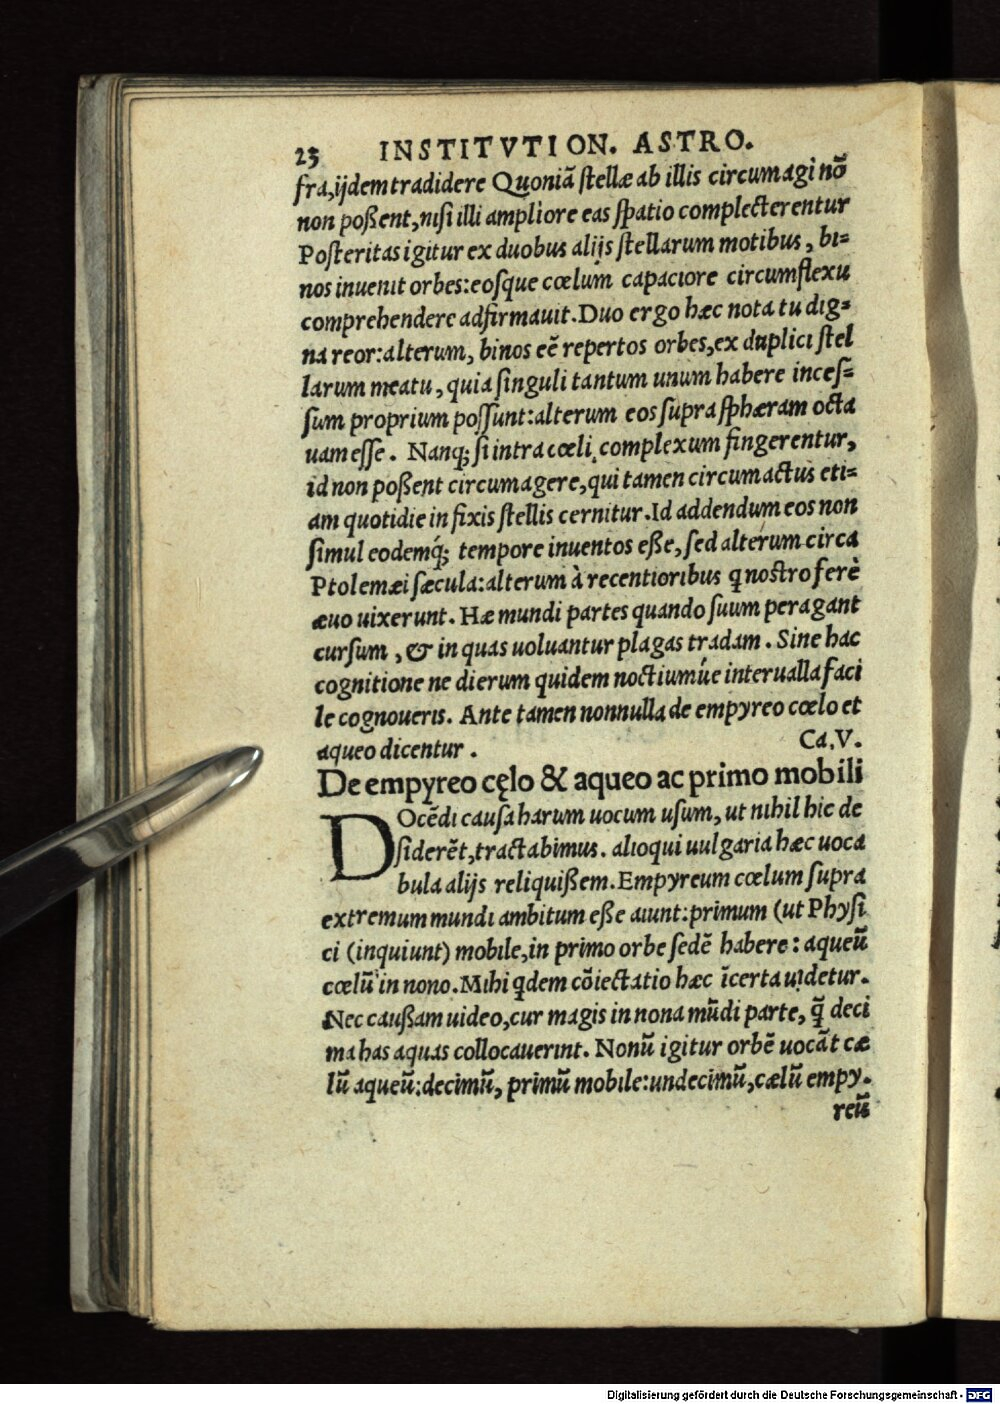 23 INSTITVTION. ASTRO.
fra,ijdem tradidere Quoniã ſtellæ ab illis circumagi nõ
non poßent,niſi illi ampliore eas ſpatio complecterentur
Poſteritas igitur ex duobus alijs ſtellarum motibus, bi=
nos inuenit orbes:eoſque cœlum capaciore circumflexu
comprehendere adfirmauit.Duo ergo hæc nota tu dig=
na reor:alterum, binos eẽ repertos orbes,ex duplici ſtel
larum meatu, quia ſinguli tantum unum habere inceſ=
ſum proprium poſſunt:alterum eos ſupra ſphæram octa
uam eſſe. Nanq; ſi intra cœli complexum fingerentur,
id non poßent circumagere,qui tamen circumactus eti=
am quotidie in fixis ſtellis cernitur.Id addendum eos non
ſimul eodemq́; tempore inuentos eße, ſed alterum circa
Ptolemæi ſæcula:alterum à recentioribus q noſtro ferè
æuo uixerunt. Hæ mundi partes quando ſuum peragant
curſum, & in quas uoluantur plagas tradam. Sine hac
cognitione ne dierum quidem noctiumúe interualla faci
le cognoueris. Ante tamen nonnulla de empyreo cœlo et
aqueo dicentur. Ca.V.
De empyreo cęlo & aqueo ac primo mobili
DOcẽdi cauſa harum uocum uſum, ut nihil hic de
ſiderẽt,tractabimus. alioqui uulgaria hæc uoca
bula alijs reliquißem.Empyreum cœlum ſupra
extremum mundi ambitum eße aiunt:primum (ut Phyſi
ci (inquiunt) mobile,in primo orbe ſedẽ habere: aqueũ
cœlũ in nono.Mihi qdem cõiectatio hæc ĩcerta uidetur.
Nec caußam uideo,cur magis in nona mũdi parte, q̃ deci
ma has aquas collocauerint. Nonũ igitur orbẽ uocãt cæ
lũ aqueũ:decimũ, primũ mobile:undecimũ,cælũ empy.
reũ
Digitalisierung gefördert durch die Deutsche Forschungsgemeinschaft - DFG